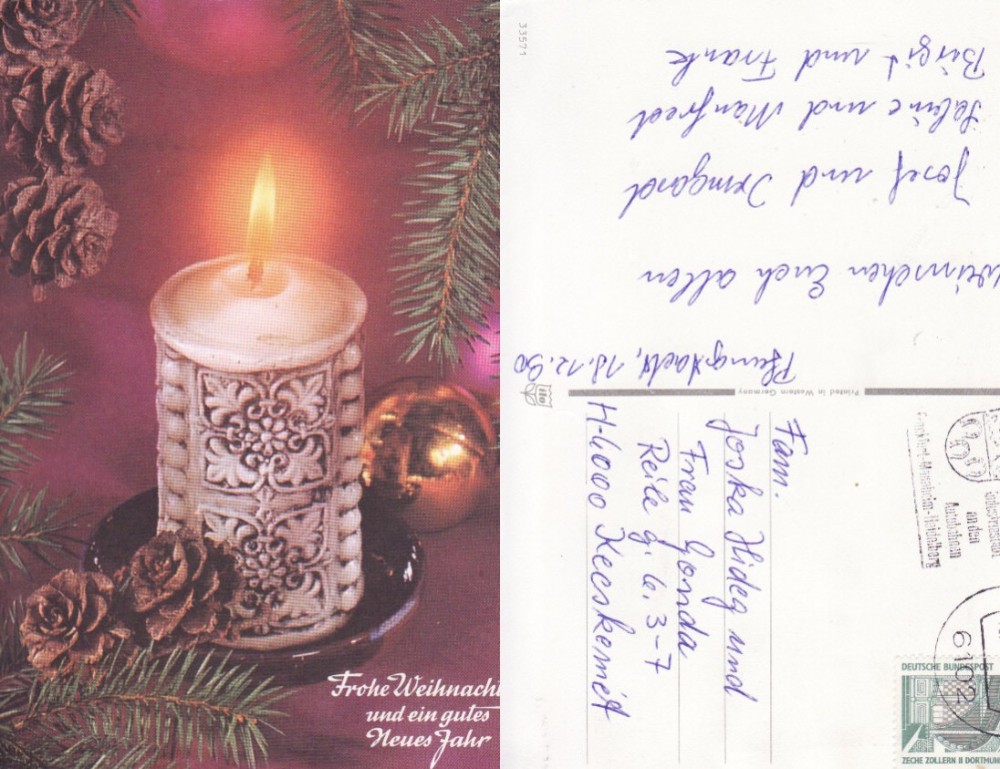 Frohe Weihnacht
und ein gutes
Neues Jahr
33571
Pfungstadt, 18.12.90
wünschen Euch allen
Josef und Irmgard
Sabine und Manfred
Birgit und Frank
ito
Printed in Western Germany
Fam.
Joska Hideg und
Frau Gonda
Reile g. 6. 3-7
H-6000 Kecskemét
an den
Autobahnen
Frankfurt-Mannheim-Heidelberg
6102
DEUTSCHE BUNDESPOST
ZECHE ZOLLERN II DORTMUN